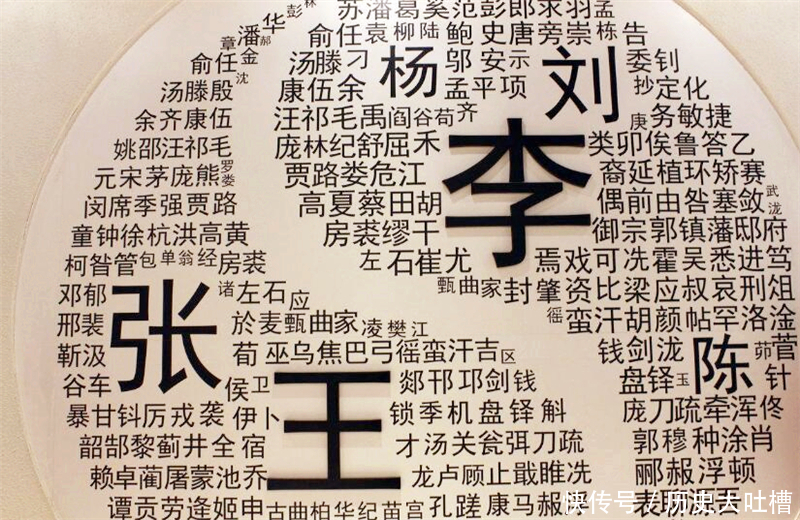 彭 林 苏潘葛奚范彭郎
章 潘 华 郝 俞任袁柳陆鲍史唐旁崇栋告
俞任金 沈 汤滕刁 杨 邬安示 刘 委钊
汤滕殷 康伍余 孟平项 抄定化
余齐康伍 汪祁毛禹阎谷荀齐 庚务敏捷
姚邵汪祁毛 庞林纪舒屈禾 李 类卯俟鲁答乙
元宋茅庞熊罗娄 贾路娄危江 裔延植环矫赛
闵席季强贾路 高夏蔡田胡 偶前由咎塞敛武泷
童钟徐杭洪高黄 房裘缪干 御宗郭镇藩邸府
柯昝管包单翁经房裘 左石崔尤 焉戏可冼霍吴悉进笃
邓郁 张 诸左石应 甄曲家封肇资比梁应叔哀刑俎
邢裴 於麦甄曲家凌樊江 徭蛮汗胡颜帖罕洛淦
靳汲 荀巫乌焦巴弓徭蛮汗吉区 钱剑泷 陈 茆菅
谷车 侯卫 王 郯邗邛剑钱 盘铎玉 针
暴甘钭厉戎袭伊卜 锁季机盘铎斛 庞刀疏牵浑佟
韶郜黎蓟井全宿 才汤关瓮弭刀疏 郭穆种涂肖
赖卓蔺屠蒙池乔 龙卢顾止戢睢冼 郦郝浮顿
谭贡劳逄姬申古曲柏华纪苗宫孔蹉康马郝
快传号/历史大吐槽